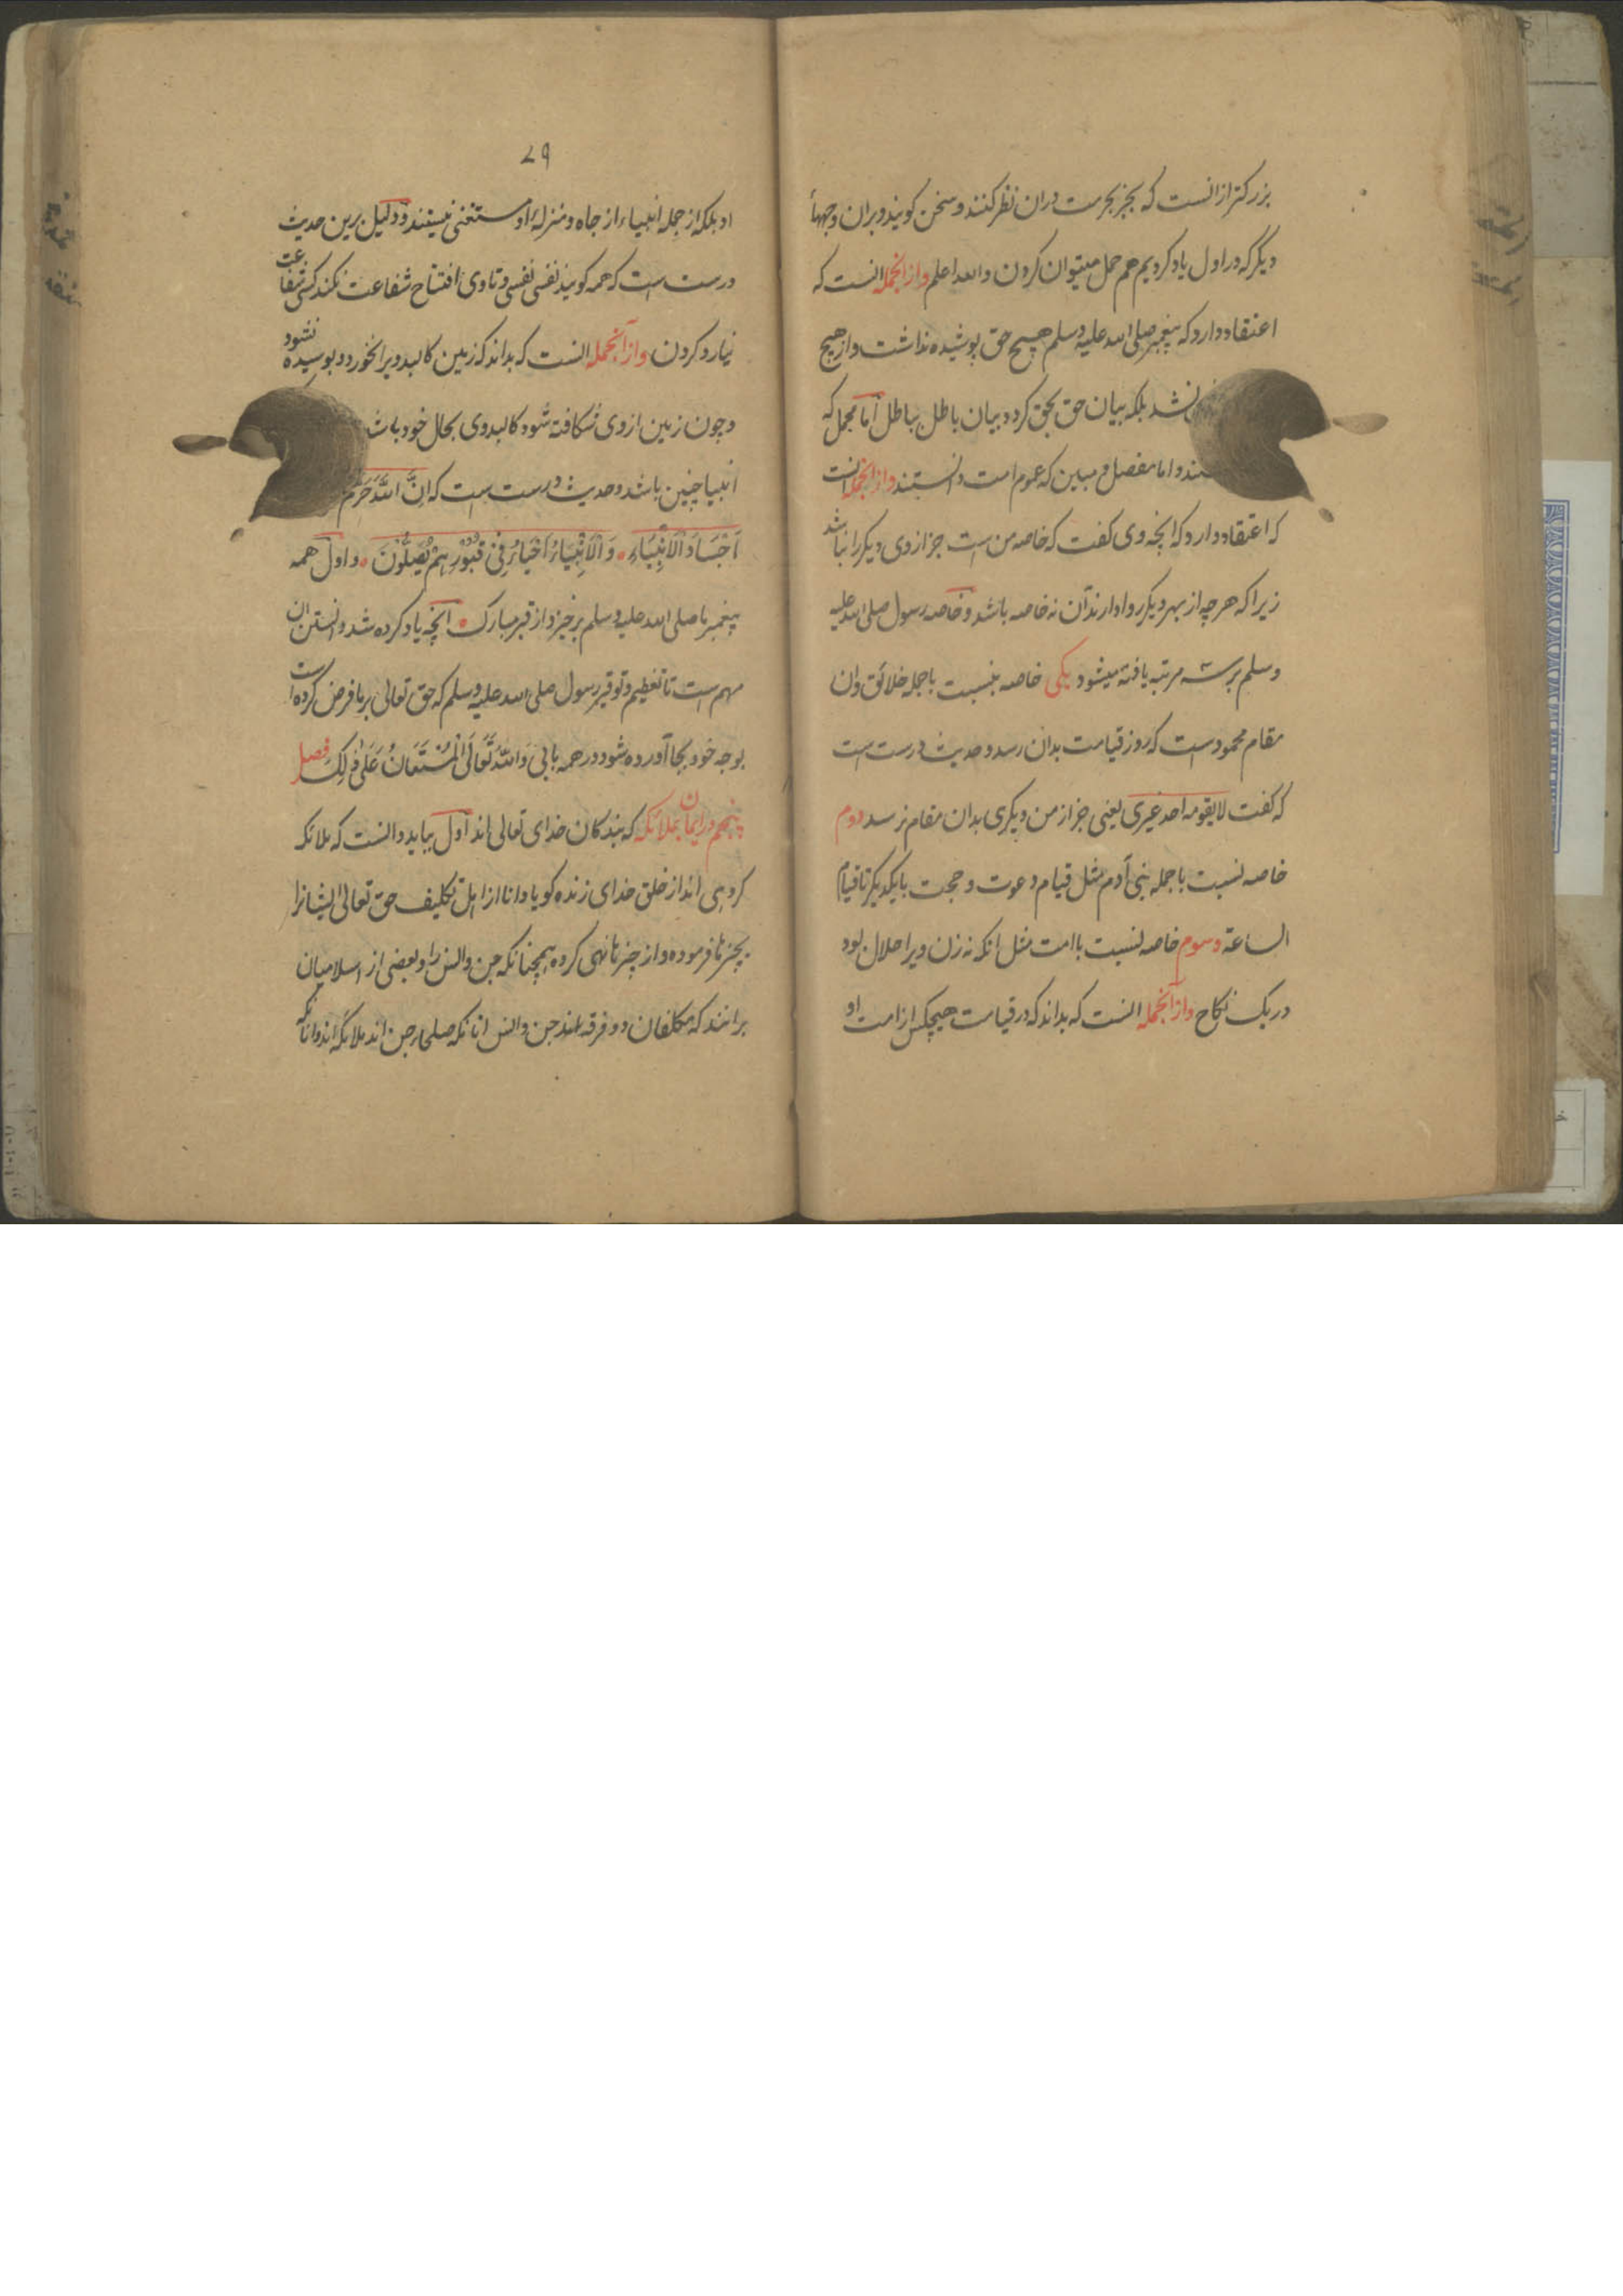 بزرکتر ازانست که بجز بحرمت دران نظر کنند و سخن کویند و بران وجهها
دیکر که در اول یاد کردیم هم حمل میتوان کردن والله اعلم وازانجمله انست که
اعتقاد دارد که پیغمبر صلی الله علیه وسلم هیچ حق پوشیده نداشت و از هیچ
نشد بلکه بیان حق بحق کرد و بیان باطل بباطل اما مجمل که
و اما مفصل و مبین که عموم امت دانستند وازانجمله انست
که اعتقاد دارد که انچه وی کفت که خاصه من است جز از وی دیکر را نباشد
زیرا که هر چه از بهر دیکر روا دارند آن نه خاصه باشد و خاصه رسول صلی الله علیه
وسلم بر سه مرتبه یافته میشود یکی خاصه بنسبت با جمله خلائق و ان
مقام محمود است که روز قیامت بدان رسد و حدیث درست است
که کفت لایقومه احد غیری یعنی جز از من دیکری بدان مقام نرسد دوم
خاصه نسبت با جمله بنی آدم مثل قیام دعوت و حجت بایکدیکر تا قیام
الساعة و سوم خاصه نسبت با امت مثل انکه نه زن ویرا حلال بود
در یک نکاح وازآنجمله انست که بداند که در قیامت هیچکس از امت او
۷۹
او بلکه از جمله انبیاء از جاه و منزله او مستغنی نیستند و دلیل برین حدیث
درست است که همه کویند نفسی نفسی و تا وی افتتاح شفاعت نکند کسی شفاعت
نیارد کردن وازآنجمله انست که بداند که زمین کالبد ویرا نخورد و بوسیده نشود
و چون زمین از وی شکافته شود کالبد وی بحال خود باشد
انبیا چنین باشد و حدیث درست است که اِنَّ اللّٰهَ حَرَّمَ
اَجْسَادَ الْاَنْبِیَاءِ وَ الْاَنْبِیَاءُ اَحْیَاءُ فِیْ قُبُوْرِهِمْ یُصَلُّوْنَ و اول همه
پیغمبر ما صلی الله علیه وسلم برخیزد از قبر مبارک انچه یاد کرده شد دانستن ان
مهم است تا تعظیم و توقیر رسول صلی الله علیه وسلم که حق تعالی بر ما فرض کرده است
بوجه خود بجا آورده شود در همه بابی وَاللّٰهُ تَعَالَی الْمُسْتَعَانُ عَلٰی ذٰلِکَ فصل
پنجم در ایمان بملائکه که بندکان خدای تعالی اند اول بباید دانست که ملائکه
کروهی اند از خلق خدای زنده کویا و دانا از اهل تکلیف حق تعالی ایشانرا
بچیزها فرموده و از چیزها نهی کرده همچنانکه جن و انس را و بعضی از اسلامیان
برانند که مکلفان دو فرقه اند جن و انس انانکه صلحاء جن اند ملائکه اند و انانکه